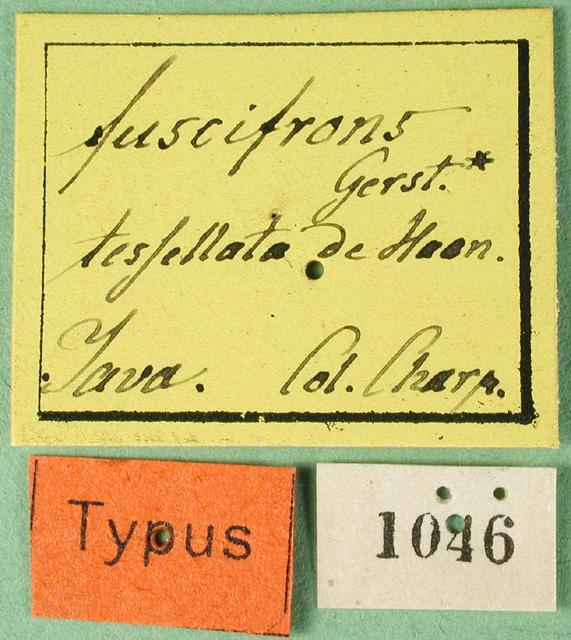 fuscifrons
Gerst.*
tessellata de Haan.
Java. Col. Charp.
Typus
1046